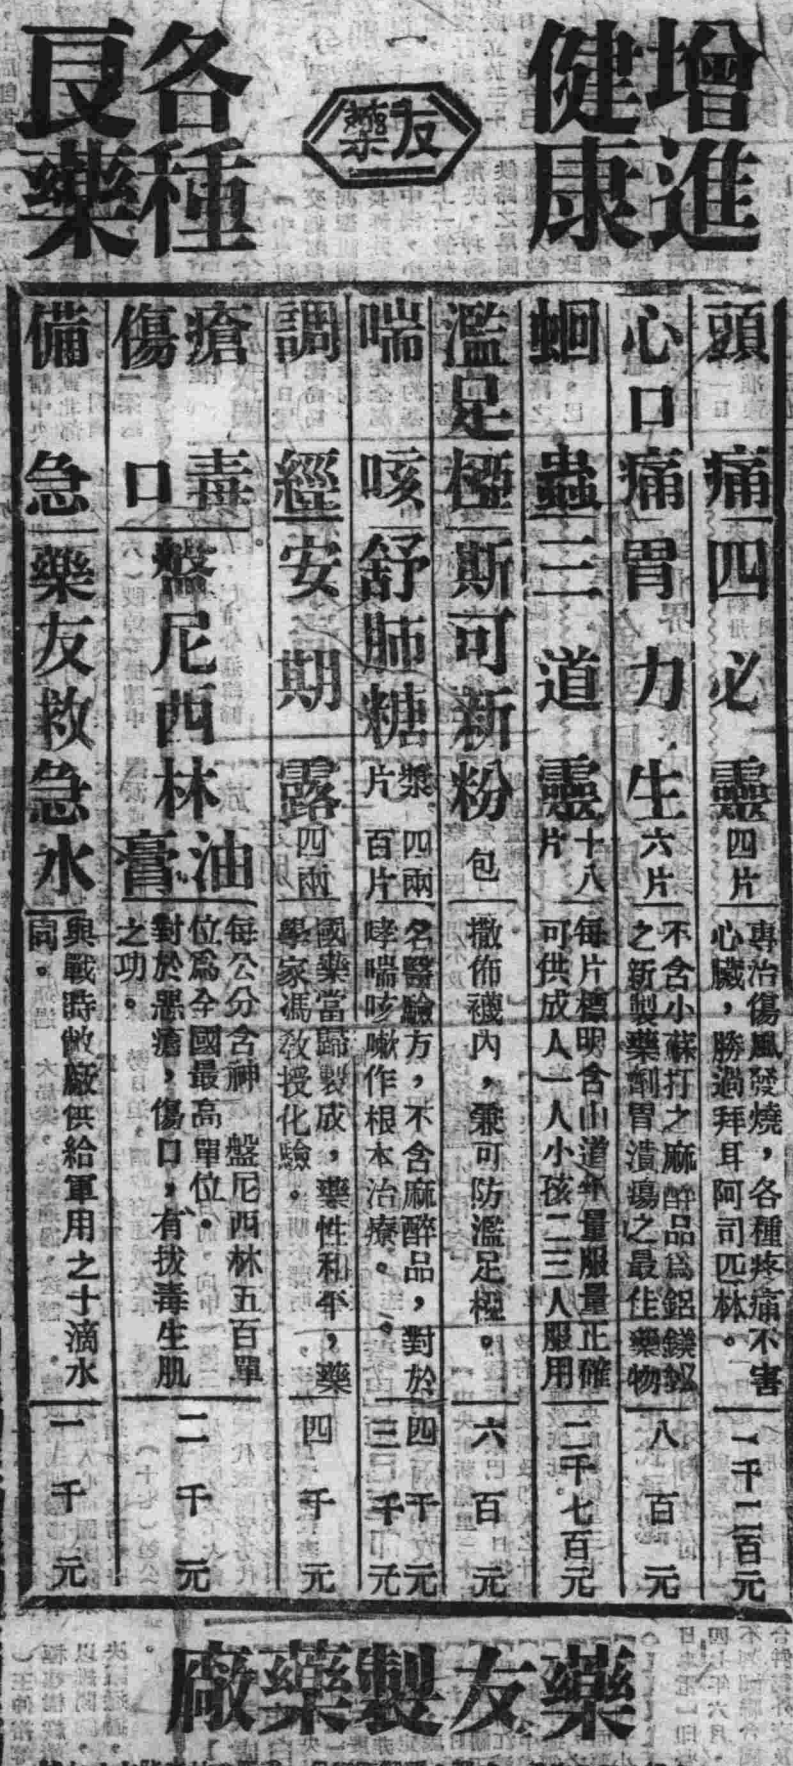 增進
健康
藥友
各種
良藥
頭痛 四必靈 四片
專治傷風發燒，各種疼痛不害
心臟，勝過拜耳阿司匹林。
一千二百元
心口痛 胃力生 六片
不含小蘇打之麻醉品爲鋁鎂鉍
之新製藥劑胃潰瘍之最佳藥物
八百元
蛔蟲 三道靈 十八片
每片標明含山道年量服量正確
可供成人一人小孩二三人服用
二千七百元
濫足極 斯可新粉 包
撒佈襪內，兼可防濫足極。
六百元
喘咳 舒肺糖
漿 四兩
片 百片
名醫驗方，不含麻醉品，對於
哮喘咳嗽作根本治療。
四千元
三千元
調經 安期露 四兩
國藥當歸製成，藥性和平，藥
學家馮敎授化驗。
四千元
瘡毒
傷口
盤尼西林
油
膏
每公分含神 盤尼西林五百單
位爲全國最高單位。
對於惡瘡，傷口，有拔毒生肌
之功。
二千元
備急 藥友救急水
與戰時敝廠供給軍用之十滴水
同。
一千元
藥友製藥廠